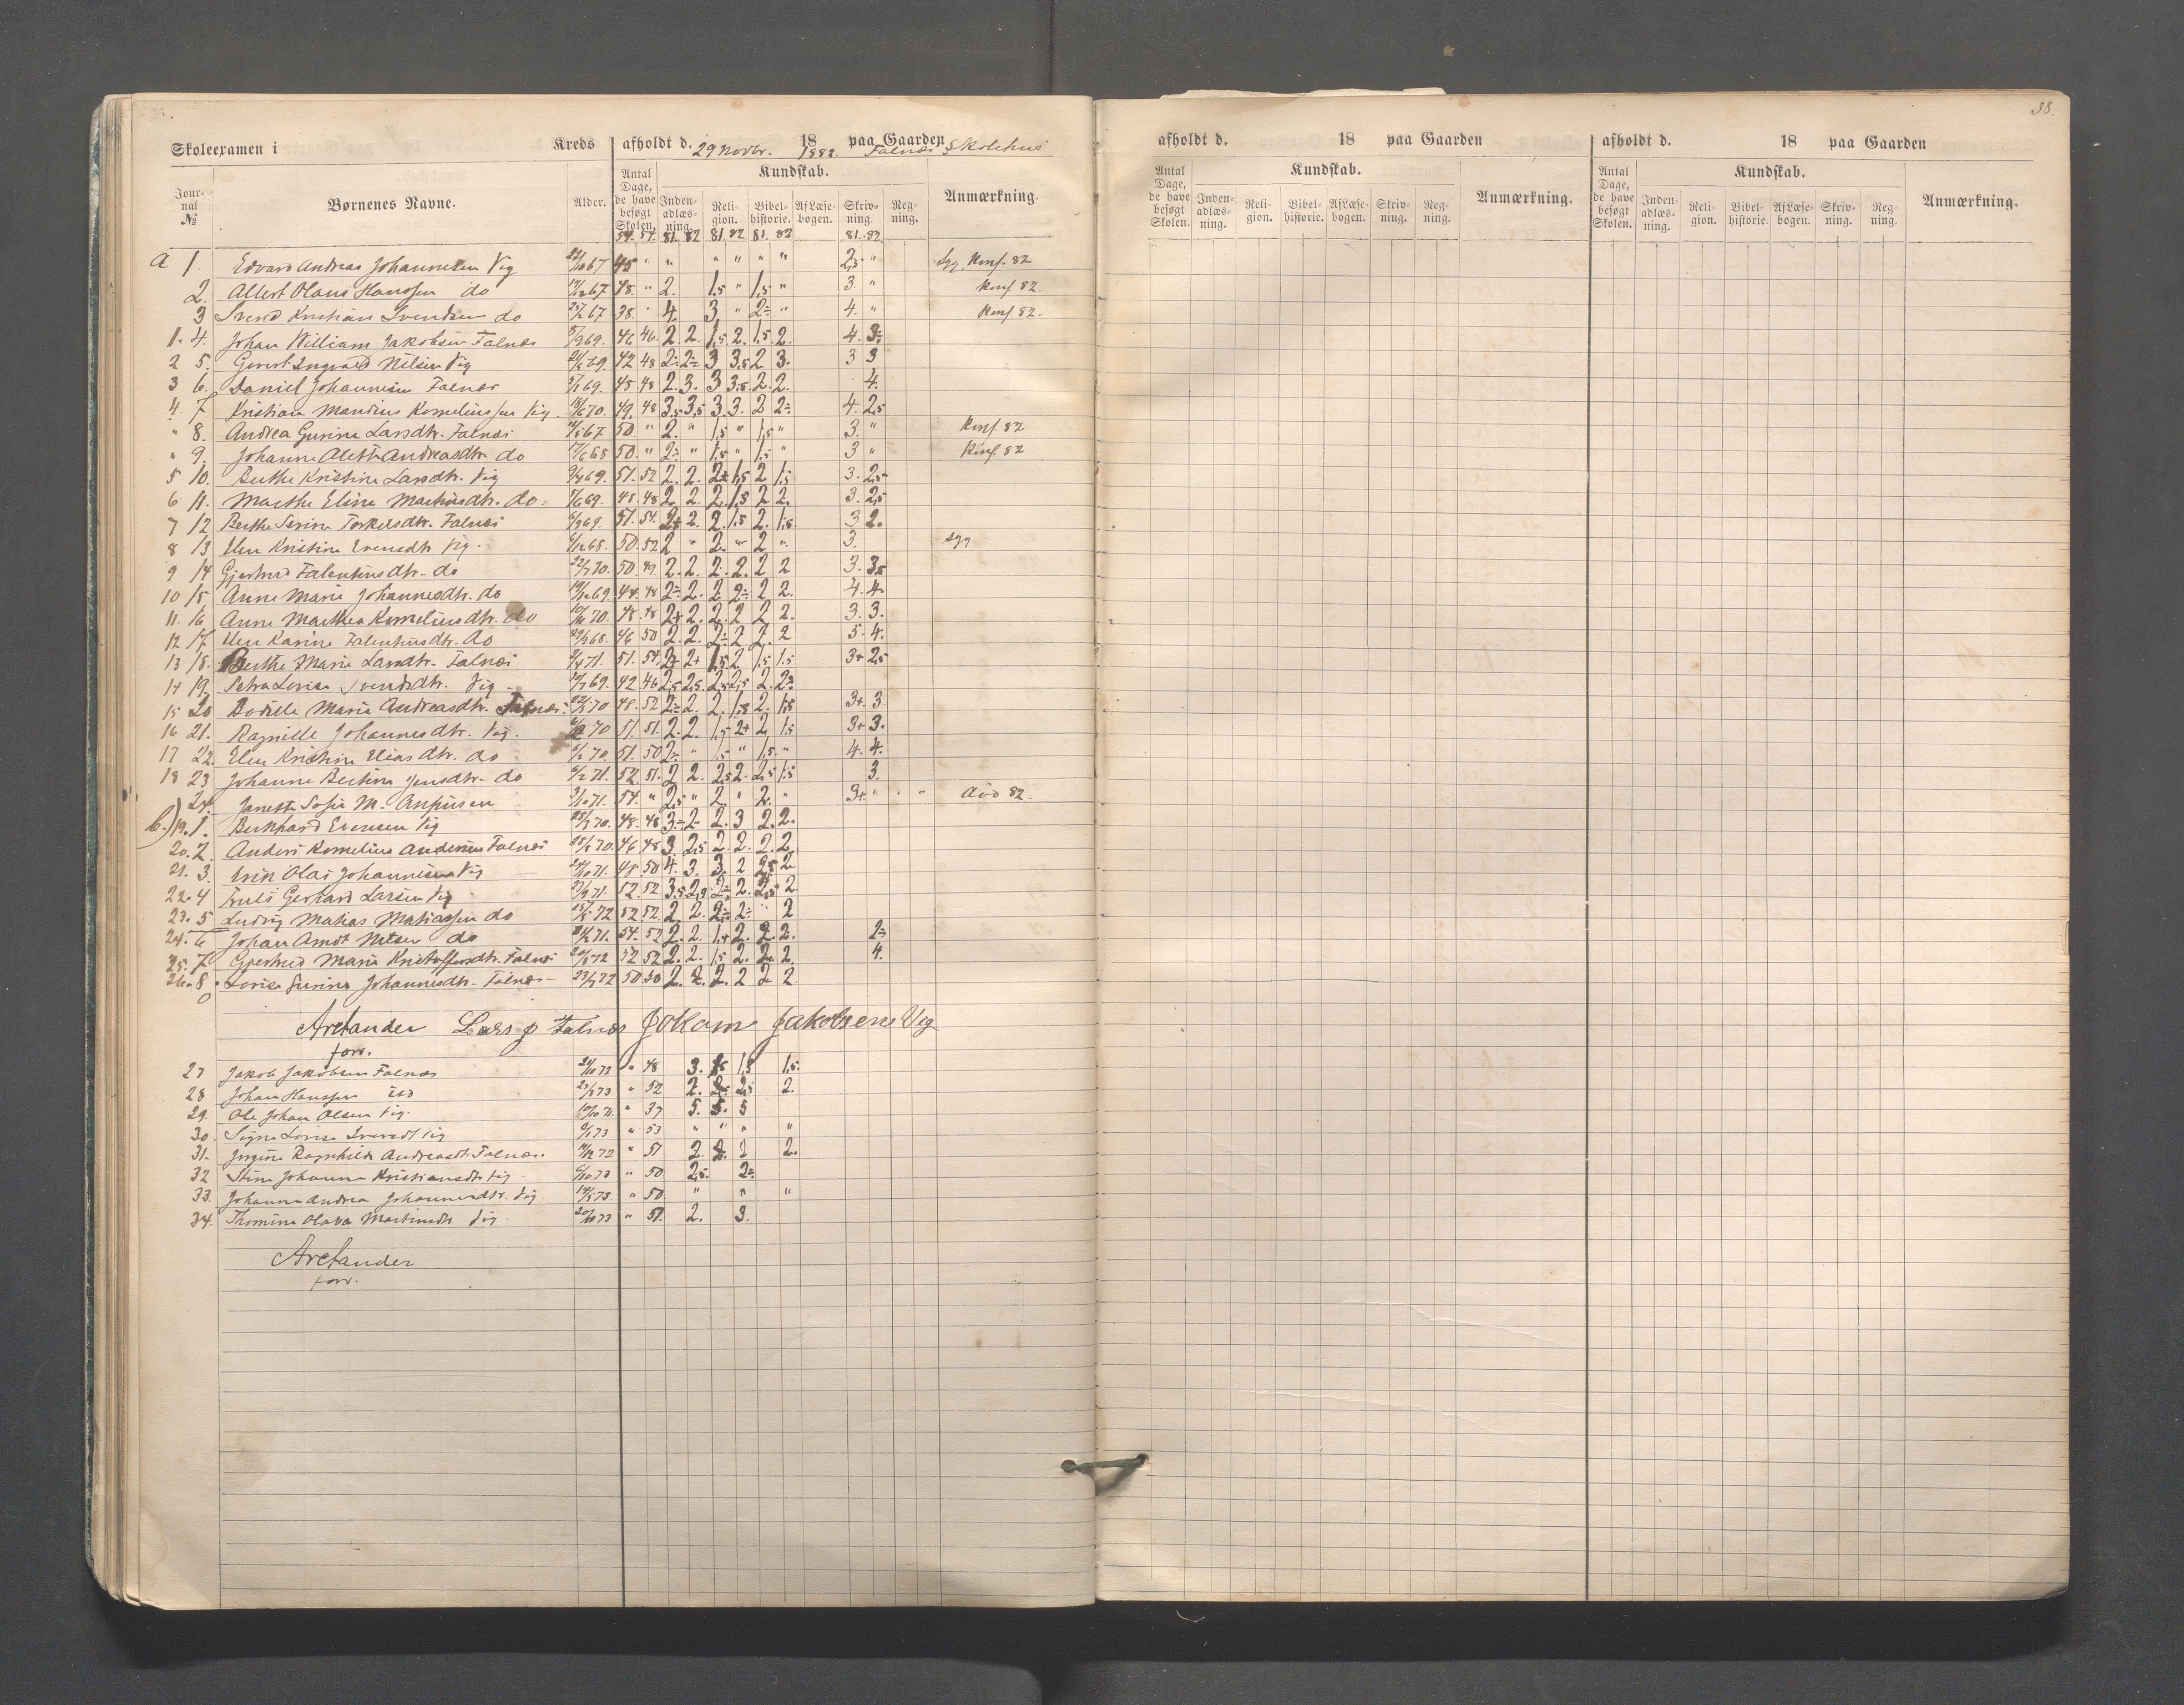 Skoleexamen i Kreds afholdt d. 29 Novbr. 1882. paa Gaarden Falnæs Skolehus
Journal № Børnenes Navne. Alder. Antal Dage, de have besøgt Skolen. Kundskab. Indenadlæsning. Religion. Bibelhistorie. Af Læsebogen. Skrivning. Regning. Anmærkning.
54. 54. 81. 82 81. 82 81. 82 81. 82.
a 1. Edvard Andreas Johannesen Vig 67 45 " " " " " " 2,5 " Syg. Konf. 82
2. Albert Olaus Hanssen do 67 48. " 2. 1,5 " 1,5 " 3. " Konf 82.
3 Svend Kristian Svendsen do 67 38. " 4. 3 " 2÷ " 4. " Konf 82.
1. 4. Johan William Jakobsen Falnæs 69. 46 46. 2. 2. 1,5 2. 1,5. 2. 4. 3÷
2 5. Gerert Ingvald Nilsen Vig 69. 42 48 2÷ 2÷ 3 3,5 2 3. 3 3
3 6. Daniel Johannesen Falnæs 69. 45. 48 2. 3. 3 3,5. 2. 2. 4.
4. 7 Kristian Mandius Kornelinssen Vig. 70. 49. 48 3,5 3,5 3. 3. 2 2÷ 4. 2,5
" 8. Andrea Gurine Larsdtr. Falnæs 67 50. " 2. " 1,5 " 1,5 " 3. " Konf 82
" 9. Johanne Alethe Andreasdtr do 17/6 68 50. " 2÷ " 1,5 " 1,5 " 3 " Konf. 82
5 10. Berthe Kristine Larsdtr. Vig 69. 51. 52 2. 2. 2+ 1,5 2 1,5 3. 2,5
6 11. Marthe Eline Martinsdtr. do. 69. 48. 48 2. 2. 2. 1,5 2 2. 3. 2,5
7 12 Berthe Serine Torkelsdtr. Falnæs 69. 51. 54. 2+ 2. 2. 1,5 2. 1,5. 3 2.
8 13 Elen Kristine Evensdtr Vig. 68. 50. 52 2 " 2. " 2 " 3. syg
9 14 Gjertrud Falentinsdtr. do 70. 50. 49. 2. 2. 2. 2. 2 2 3. 3,5
10 15 Anne Marie Johannesdtr. do 69. 44. 48 2÷ 2. 2. 2÷ 2 2. 4. 4.
11. 16 Anne Marthea Kornelinsdtr. do 70. 48. 48 2+ 2. 2. 2 2 2. 3. 3.
12 17 Elen Karine Falentinsdtr. do 68. 46 50 2. 2. 2÷ 2 2. 2 5. 4.
13 18. Berthe Marie Larsdtr. Falnæs 71. 51. 54. 2+ 2+ 1,5 2 1,5 1.5 3+ 2,5
14 19. Petra Lovise Svendsdtr. Vig 69. 42 46 2,5 2,5. 2,5 2,5 2. 2÷
15 20 Bodille Marie Andreasdtr. Falnæs. 70 48. 52 2÷ 2. 2. 1,5 2. 1,5 3+. 3
16 21. Ragnille Johannesdtr. Vig. 70 51. 51. 2. 2. 1,5 2+ 2. 1,5 3+ 3.
17 22. Elen Kristine Eliasdtr. do 70. 51. 50 2÷ " 1,5 " 1,5. " 4. 4.
18 23 Johanne Bertine Jensdtr. do 71. 52. 51. 2. 2. 2,5 2. 2,5 1,5 3.
24. Janette Sofie M. Anfinsen 71. 54. " 2,5 " 2. " 2. " 3+. " " " Død 82.
b.) 19. 1. Berkhard Evensen Vig 70. 48. 48 3÷ 2÷ 2. 3 2. 2.
20. 2. Anders Kornelius Andersen Falnæs 70. 46 48 3. 2,5 2. 2. 2. 2.
21. 3. Erik Olai Johannesen Vig 71. 48. 50 4. 3. 3. 2 2,5 2
22. 4 Truls Gerhard Larsen Vig 71. 52. 52 3,5 2,5 2÷ 2. 2,5 2
23. 5 Ludvig Matias Matiassen do 72 52 52. 2. 2. 2÷ 2÷ " 2
24. 6 Johan Arndt Nilsen do 71. 54. 52 2. 2. 1,5 2. 2. 2. 2÷
25. 7 Gjertrud Marie Kristoffersdtr. Falnæs 72 52 52 2. 2. 1,5 2. 2. 2. 4.
26. 8. Lovise Gurine Johannesdtr. Falnæs 72 50 50 2. 2. 2. 2 2 2
Arctander Lars J Falnæs Johan Jakobsen Vig
forr.
27 Jakob Jakobsen Falnæs 24/10 72 " 48 3. 1,5 1,5 1,5.
28 Johan Hanssen 73 " 52 2. 2. 2,5 2.
29. Ole Johan Olsen Vig. " 37 5. 5. 5
30. Signe Lovise Iversdt Vig 73 " 53 " " " "
31. Ingine Ragnhilda Andreasdt. Falnæs. 72 " 51 2. 2. 2 2.
32 Stine Johanna Kristiansdtr Vig 73 " 50 2,5. 2÷
33. Johanna Andrea Johannesdtr. Vig 73. " 50. " " "
34. Thomine Olava Martinsdtr Vig. 73 " 51. 2. 3.
Arctander
forr.
38.
afholdt d. 18 paa Gaarden
Antal Dage, de have besøgt Skolen. Kundskab. Indenadlæsning. Religion. Bibelhistorie. Af Læsebogen. Skrivning. Regning. Anmærkning.
afholdt d. 18 paa Gaarden
Antal Dage, de have besøgt Skolen. Kundskab. Indenadlæsning. Religion. Bibelhistorie. Af Læsebogen. Skrivning. Regning. Anmærkning.